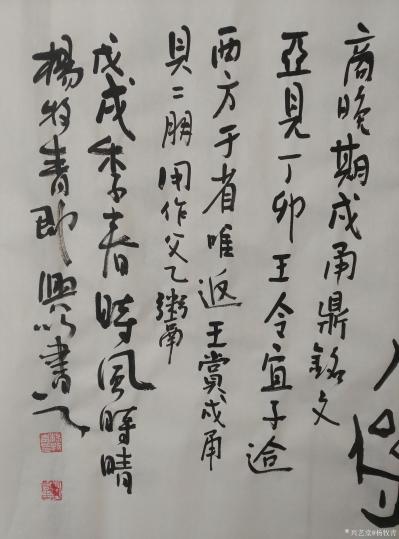 商晚期戍甬鼎銘文
亞見丁卯王令宜子迨
西方于省唯返王賞戍甬
貝二朋用作父乙鬻
戊戌季春時風時晴
楊牧青即興書之
兴艺堂@杨牧青